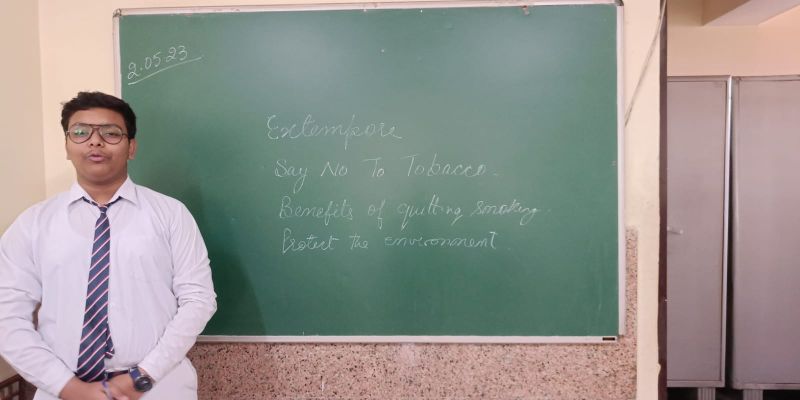 2.05.23
Extempore
Say No To Tobacco.
Benefits of quitting smoking.
Protect the environment.